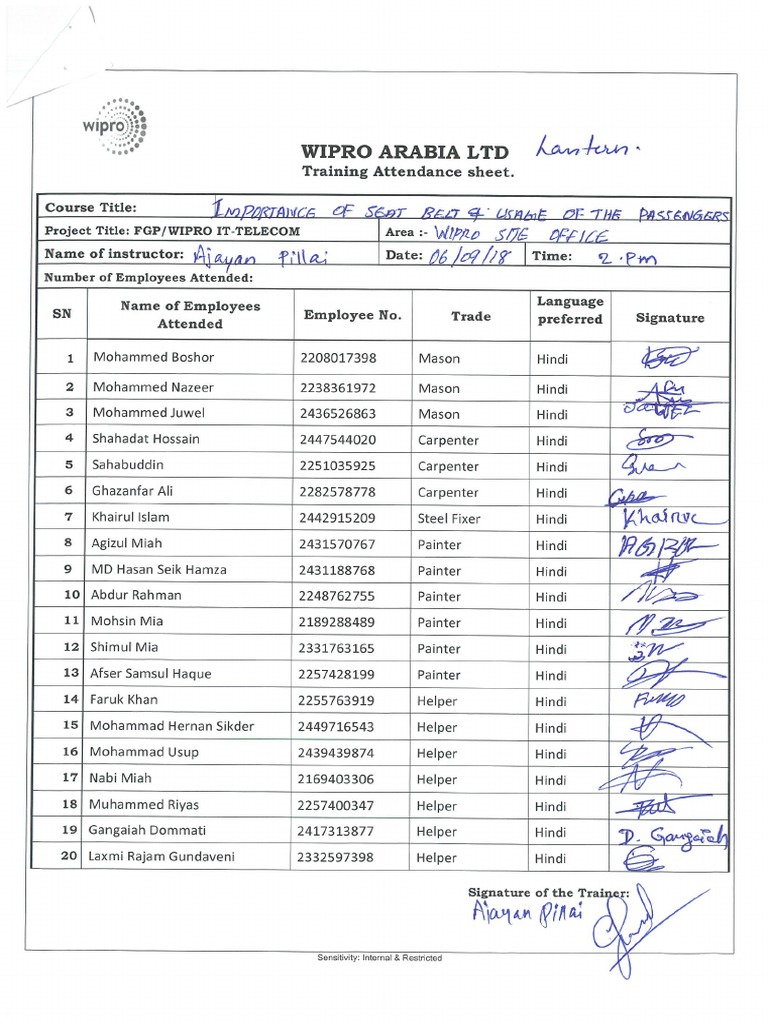 wipro
WIPRO ARABIA LTD Lantern.
Training Attendance sheet.
Course Title: IMPORTANCE OF SEAT BELT & USAGE OF THE PASSENGERS
Project Title: FGP/WIPRO IT-TELECOM Area :- WIPRO SITE OFFICE
Name of instructor: Ajayan Pillai Date: 06/09/18 Time: 2.Pm
Number of Employees Attended:
SN Name of Employees Attended Employee No. Trade Language preferred Signature
1 Mohammed Boshor 2208017398 Mason Hindi
2 Mohammed Nazeer 2238361972 Mason Hindi
3 Mohammed Juwel 2436526863 Mason Hindi
4 Shahadat Hossain 2447544020 Carpenter Hindi
5 Sahabuddin 2251035925 Carpenter Hindi
6 Ghazanfar Ali 2282578778 Carpenter Hindi
7 Khairul Islam 2442915209 Steel Fixer Hindi
8 Agizul Miah 2431570767 Painter Hindi
9 MD Hasan Seik Hamza 2431188768 Painter Hindi
10 Abdur Rahman 2248762755 Painter Hindi
11 Mohsin Mia 2189288489 Painter Hindi
12 Shimul Mia 2331763165 Painter Hindi
13 Afser Samsul Haque 2257428199 Painter Hindi
14 Faruk Khan 2255763919 Helper Hindi
15 Mohammad Hernan Sikder 2449716543 Helper Hindi
16 Mohammad Usup 2439439874 Helper Hindi
17 Nabi Miah 2169403306 Helper Hindi
18 Muhammed Riyas 2257400347 Helper Hindi
19 Gangaiah Dommati 2417313877 Helper Hindi D. Gangaiah
20 Laxmi Rajam Gundaveni 2332597398 Helper Hindi
Signature of the Trainer:
Ajayan Pillai
Sensitivity: Internal & Restricted